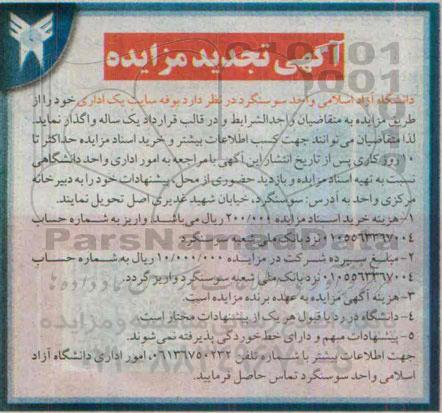 آگهی تجدید مزایده
دانشگاه آزاد اسلامی واحد سوسنگرد در نظر دارد بوفه سایت یک اداری خود را از
طریق مزایده به متقاضیان واجدالشرایط و در قالب قرارداد یک ساله واگذار نماید.
لذا متقاضیان می‌توانند جهت کسب اطلاعات بیشتر و خرید اسناد مزایده حداکثر تا
۱۰ روز کاری پس از تاریخ انتشار این آگهی با مراجعه به امور اداری واحد دانشگاهی
نسبت به تهیه اسناد مزایده و بازدید حضوری از محل، پیشنهادات خود را به دبیرخانه
مرکزی واحد به آدرس: سوسنگرد، خیابان شهید غدیری اصل تحویل نمایند.
۱- هزینه خرید اسناد مزایده ۲۰۰/۰۰۰ ریال می‌باشد. واریز به شماره حساب
نزد بانک ملی شعبه سوسنگرد
۲- مبلغ سپرده شرکت در مزایده ۱۰/۰۰۰/۰۰۰ ریال به شماره حساب
نزد بانک ملی شعبه سوسنگرد واریز گردد.
۳- هزینه آگهی مزایده به عهده برنده مزایده است.
۴- دانشگاه در رد یا قبول هر یک از پیشنهادات مختار است.
۵- پیشنهادات مبهم و دارای خط خوردگی پذیرفته نمی‌شوند.
جهت اطلاعات بیشتر با شماره تلفن ۰۶۱۳۶۷۵۰۲۳۲، امور اداری دانشگاه آزاد
اسلامی واحد سوسنگرد تماس حاصل فرمایید.